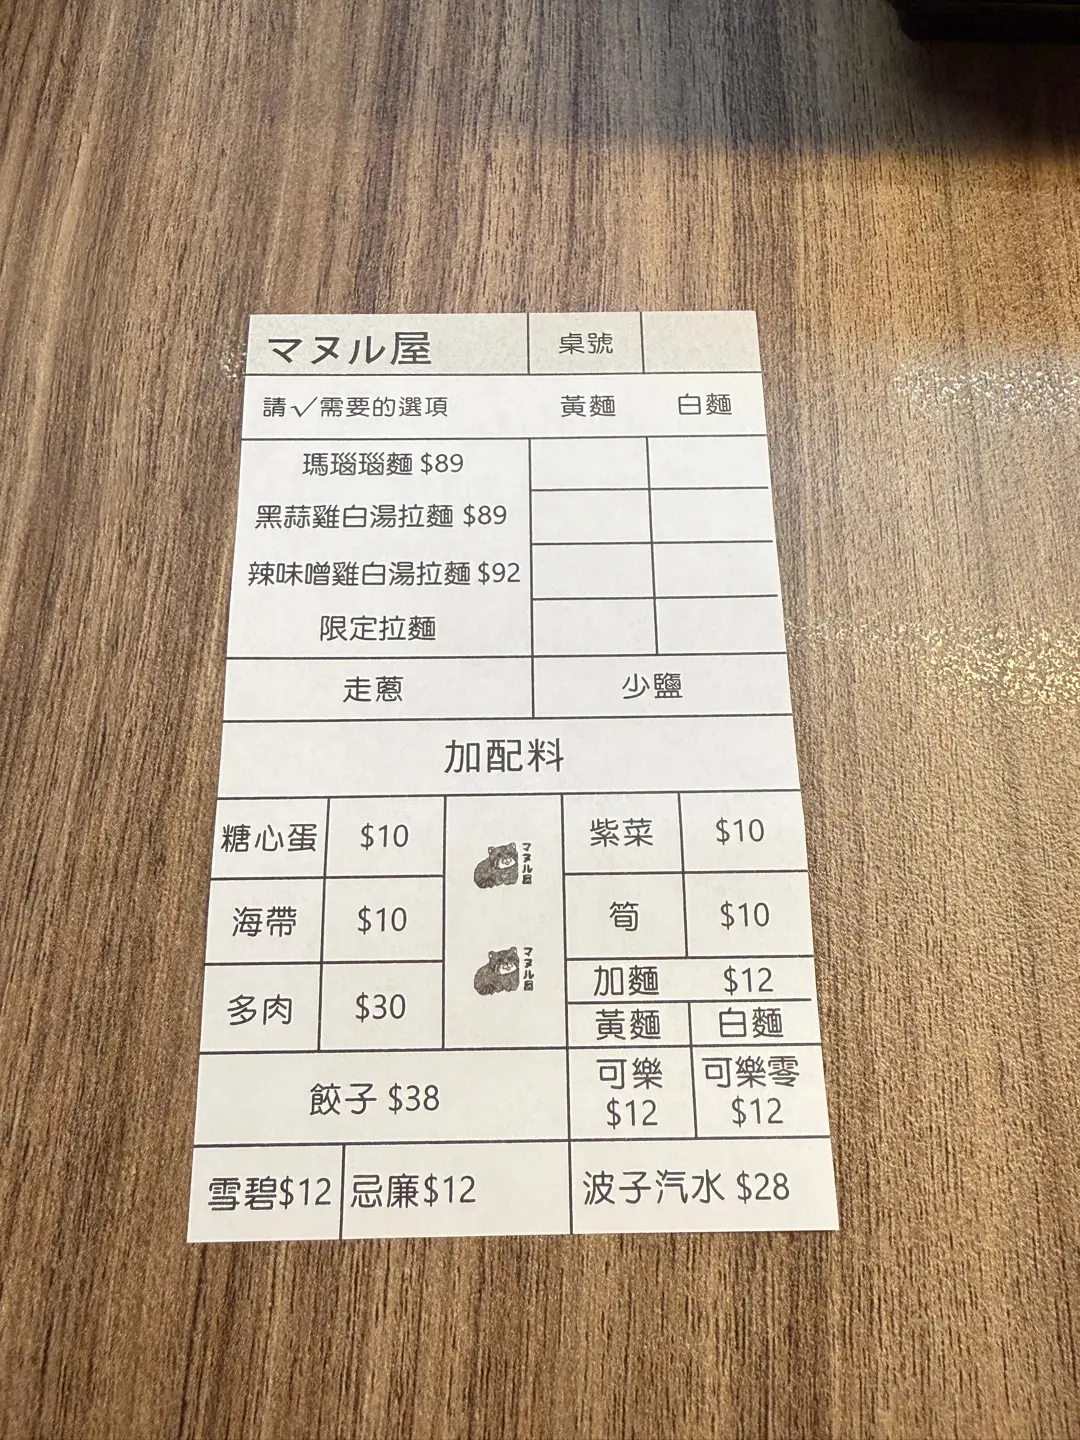 マヌル屋 桌號
請✓需要的選項 黃麵 白麵
瑪瑙瑙麵 $89
黑蒜雞白湯拉麵 $89
辣味噌雞白湯拉麵 $92
限定拉麵
走蔥 少鹽
加配料
糖心蛋 $10 紫菜 $10
マヌル屋
海帶 $10 筍 $10
マヌル屋
多肉 $30 加麵 $12
黃麵 白麵
餃子 $38 可樂 $12 可樂零 $12
雪碧$12 忌廉$12 波子汽水 $28